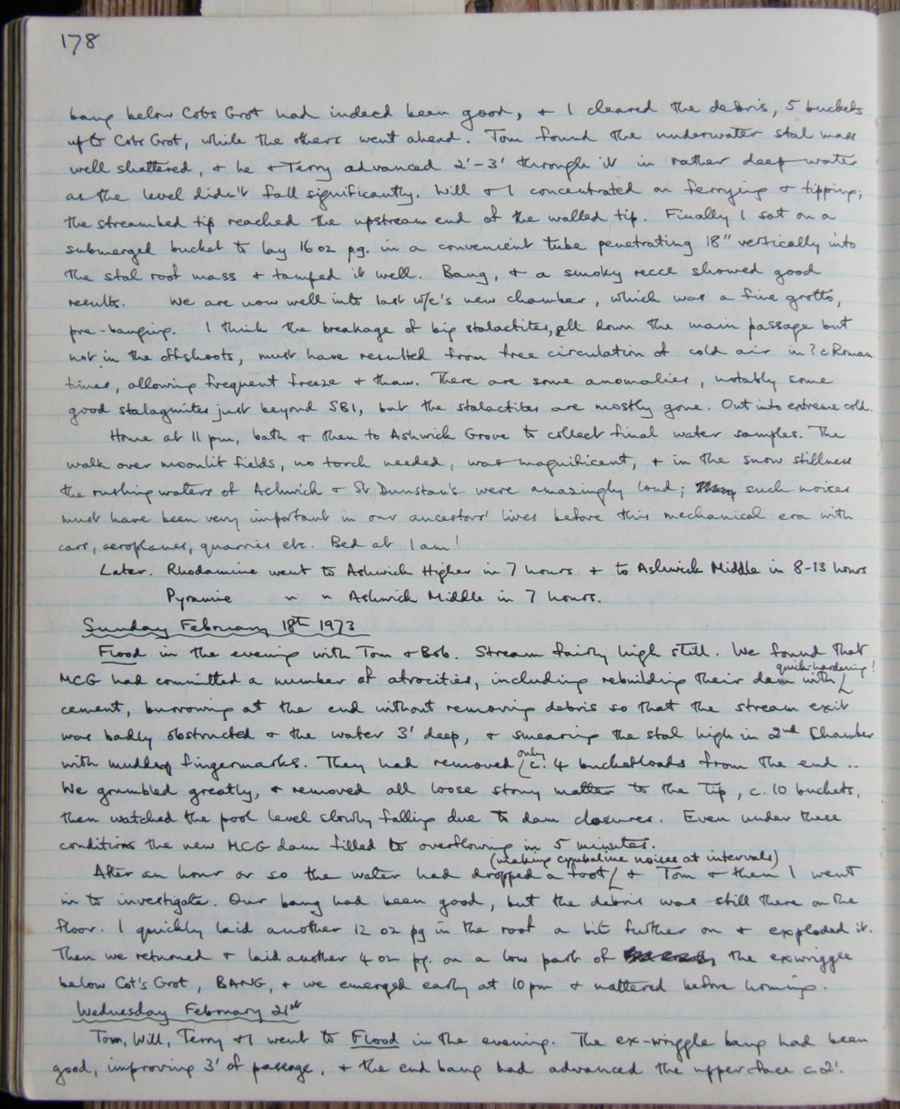 178
bang below Cots Grot had indeed been good, + I cleared the debris, 5 buckets
up to Cots Grot, while the others went ahead. Tom found the underwater stal mass
well shattered, + he + Terry advanced 2'-3' through it in rather deep water
as the level didn't fall significantly. Will + I concentrated on ferrying + tipping;
the streambed tip reached the upstream end of the walled tip. Finally I sat on a
submerged bucket to lay 16 oz pg. in a convenient tube penetrating 18" vertically into
the stal roof mass + tamped it well. Bang, + a smoky recce showed good
results. We are now well into last w/e's new chamber, which was a fine grotto,
pre-banging. I think the breakage of big stalactites, all down the main passage but
not in the offshoots, must have resulted from free circulation of cold air in ? c Roman
times, allowing frequent freeze + thaw. There are some anomalies, notably some
good stalagmites just beyond SB1, but the stalactites are mostly gone. Out into extreme cold.
Home at 11 pm, bath + then to Ashwick Grove to collect final water samples. The
walk over moonlit fields, no torch needed, was magnificent, + in the snow stillness
the rushing waters of Ashwick + St Dunstan's were amazingly loud; such noises
must have been very important in our ancestors' lives before this mechanical era with
cars, aeroplanes, quarries etc. Bed at 1 am!
Later. Rhodamine went to Ashwick Higher in 7 hours + to Ashwick Middle in 8-13 hours
Pyranine " " Ashwick Middle in 7 hours.
Sunday February 18th 1973
Flood in the evening with Tom + Bob. Stream fairly high still. We found that
quick-hardening!
MCG had committed a number of atrocities, including rebuilding their dam with
cement, burrowing at the end without removing debris so that the stream exit
was badly obstructed + the water 3' deep, + smearing the stal high in 2nd Chamber
with muddy fingermarks. They had removed only c. 4 bucketloads from the end ..
We grumbled greatly, + removed all loose stony matter to the Tip, c. 10 buckets,
then watched the pool level slowly falling due to dam closures. Even under these
conditions the new MCG dam filled to overflowing in 5 minutes.
(making cymbaline noises at intervals)
After an hour or so the water had dropped a foot + Tom + then I went
in to investigate. Our bang had been good, but the debris was still there on the
floor. I quickly laid another 12 oz pg in the roof a bit further on + exploded it.
Then we returned + laid another 4 oz pg. on a low part of the exwriggle
below Cot's Grot, BANG, + we emerged early at 10 pm + nattered before homing.
Wednesday February 21st
Tom, Will, Terry + I went to Flood in the evening. The ex-wriggle bang had been
good, improving 3' of passage, + the end bang had advanced the upper face c. 2'.